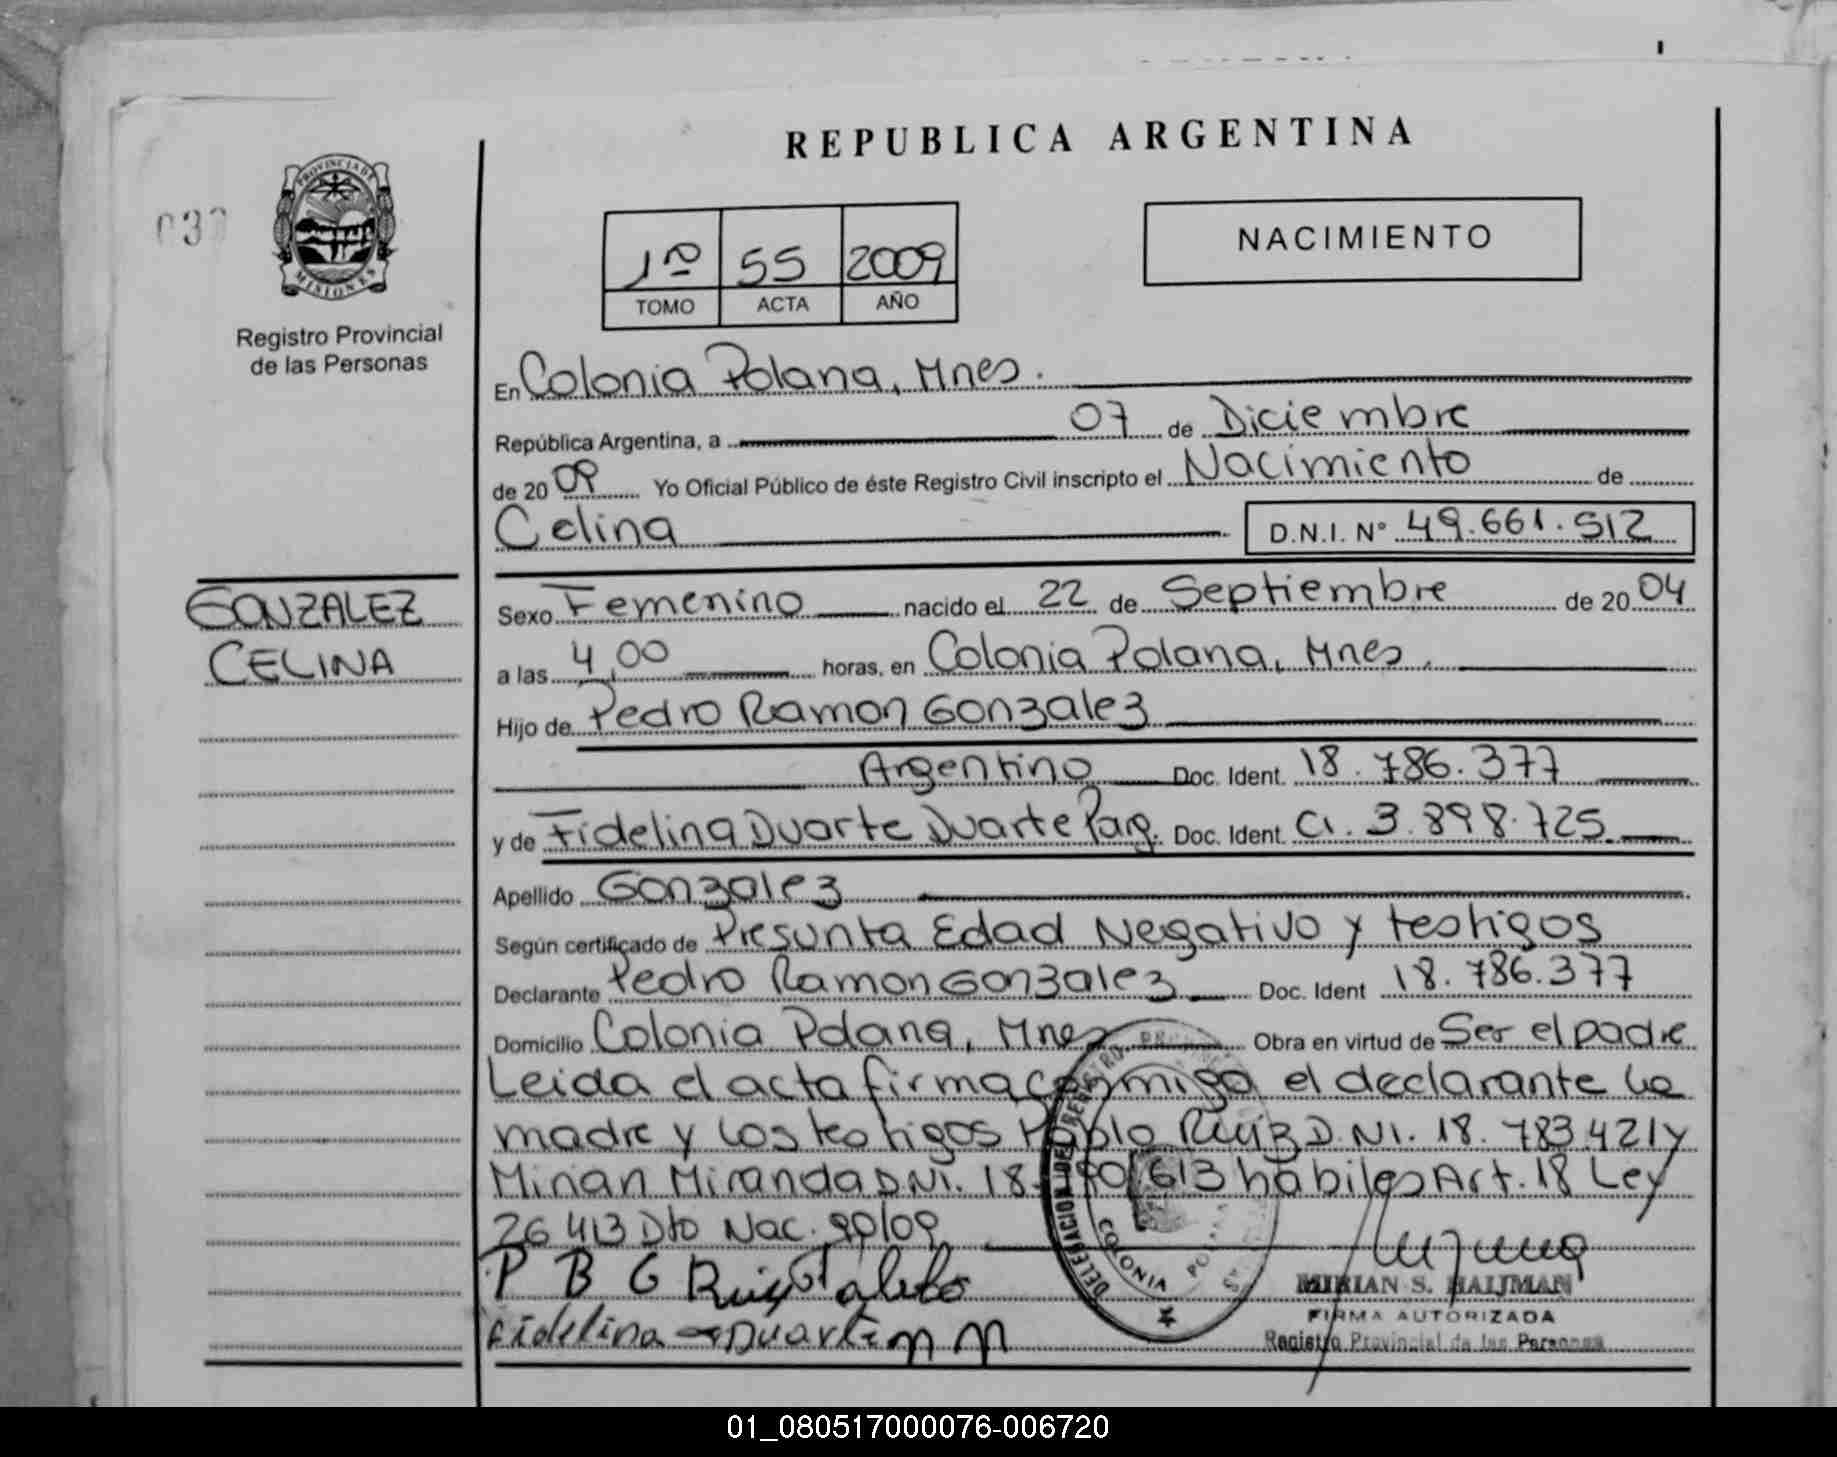 REPUBLICA ARGENTINA
PROVINCIA DE
MISIONES
Registro Provincial
de las Personas
1º 55 2009
TOMO ACTA AÑO
NACIMIENTO
En Colonia Polana, Mnes.
República Argentina, a 07 de Diciembre
de 2009 Yo Oficial Público de éste Registro Civil inscripto el Nacimiento de
Celina D.N.I. Nº 49.661.512
GONZALEZ
CELINA
Sexo Femenino nacido el 22 de Septiembre de 2004
a las 4,00 horas, en Colonia Polana, Mnes.
Hijo de Pedro Ramon Gonzalez
Argentino Doc. Ident. 18.786.377
y de Fidelina Duarte Duarte Parg. Doc. Ident. CI. 3.898.725
Apellido Gonzalez
Según certificado de Presunta Edad Negativo y testigos
Declarante Pedro Ramon Gonzalez Doc. Ident 18.786.377
Domicilio Colonia Polana, Mnes Obra en virtud de Ser el padre
Leida el acta firma conmigo el declarante la
madre y los testigos Pablo Ruiz D.NI. 18.783.421 y
Mirian Miranda D.NI. 18. 613 habiles Art. 18 Ley
26413 Dto Nac. 90/09
P B G Ruiz Pablo
Fidelina Duarte M M
DELEGACION DEL REGISTRO
COLONIA POLANA
MIRIAN S. HALJMAN
FIRMA AUTORIZADA
Registro Provincial de las Personas
01_080517000076-006720